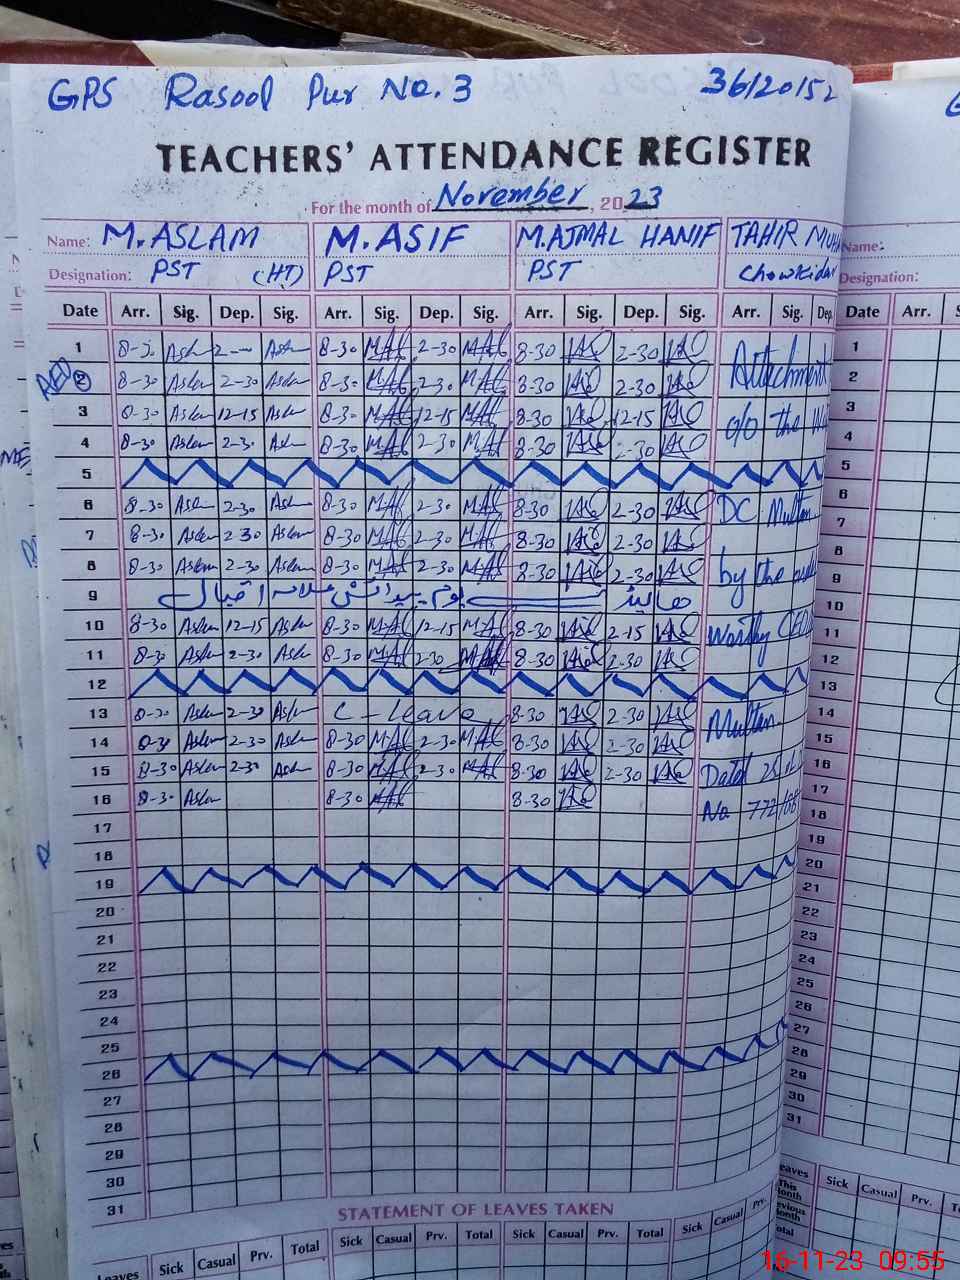 GPS Rasool Pur No. 3 36120152
TEACHERS' ATTENDANCE REGISTER
For the month of November, 2023
Name: M. ASLAM M. ASIF M. AJMAL HANIF TAHIR Name:
Designation: PST (HT) PST PST Chowkidar Designation:
Date Arr. Sig. Dep. Sig. Arr. Sig. Dep. Sig. Arr. Sig. Dep. Sig. Arr. Sig. Dep. Date Arr.
1 8-30 Aslam 2-30 Aslam 8-30 MAf 2-30 MAf 8-30 2-30 Attachment 1
2 8-30 Aslam 2-30 Aslam 8-30 MAf 2-30 MAf 8-30 2-30 2
3 8-30 Aslam 12-15 Aslam 8-30 MAf 12-15 MAf 8-30 12-15 o/o the 3
4 8-30 Aslam 2-30 Aslam 8-30 MAf 2-30 MAf 8-30 2-30 4
5 5
6 8-30 Aslam 2-30 Aslam 8-30 MAf 2-30 MAf 8-30 2-30 DC Multan 6
7 8-30 Aslam 2-30 Aslam 8-30 MAf 2-30 MAf 8-30 2-30 7
8 8-30 Aslam 2-30 Aslam 8-30 MAf 2-30 MAf 8-30 2-30 by the 8
9 یوم پیدائش علامہ اقبال 9
10 8-30 Aslam 12-15 Aslam 8-30 MAf 12-15 MAf 8-30 2-15 Worthy CEO 10
11 8-30 Aslam 2-30 Aslam 8-30 MAf 2-30 MAf 8-30 2-30 11
12 12
13 8-30 Aslam 2-30 Aslam C-Leave 8-30 2-30 Multan 13
14 8-30 Aslam 2-30 Aslam 8-30 MAf 2-30 MAf 8-30 2-30 14
15 8-30 Aslam 2-30 Aslam 8-30 MAf 2-30 MAf 8-30 2-30 Dated 15
16 8-30 Aslam 8-30 MAf 8-30 No 772/ 16
17 17
18 18
19 19
20 20
21 21
22 22
23 23
24 24
25 25
26 26
27 27
28 28
29 29
30 30
31 31
STATEMENT OF LEAVES TAKEN
Leaves Sick Casual Prv. Total Sick Casual Prv. Total Sick Casual Prv. Total Sick Casual Prv. Leaves Sick Casual Prv.
This Month
Previous Month
Total
16-11-23 09:55